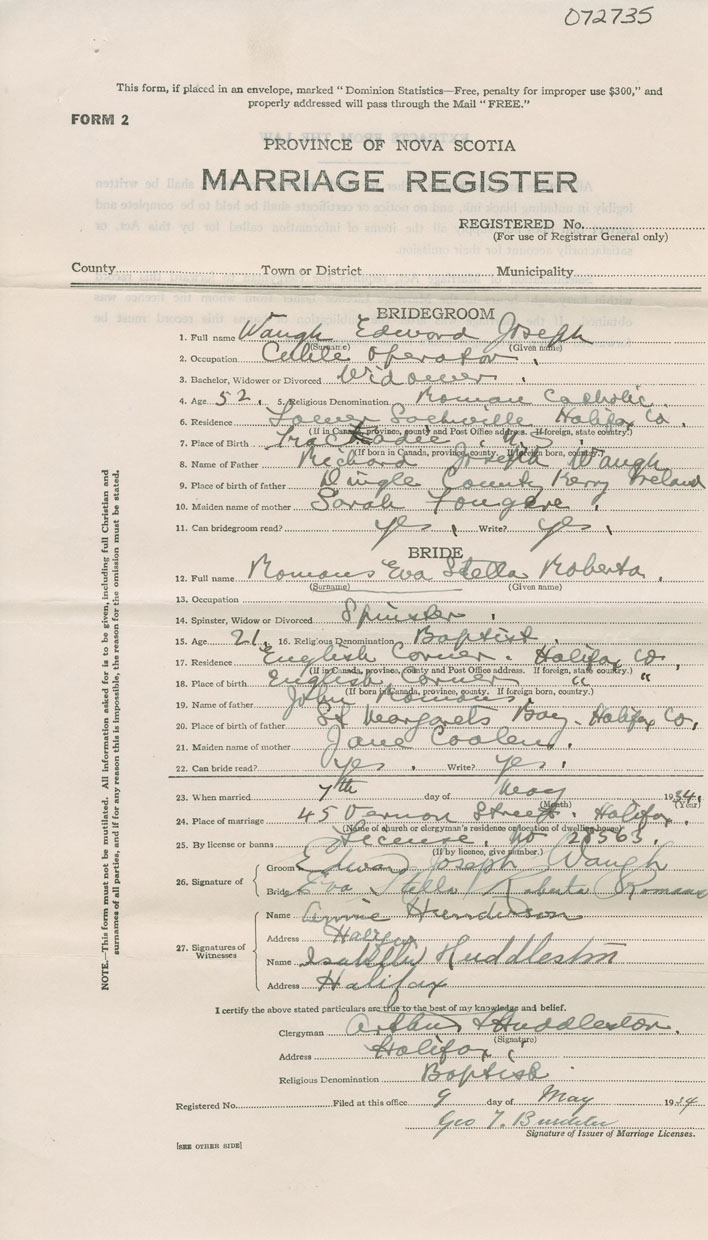 072735
This form, if placed in an envelope, marked "Dominion Statistics—Free, penalty for improper use $300," and
properly addressed will pass through the Mail "FREE."
FORM 2
PROVINCE OF NOVA SCOTIA
MARRIAGE REGISTER
REGISTERED No.
(For use of Registrar General only)
County Town or District Municipality
BRIDEGROOM
1. Full name Waugh Edward Joseph
(Surname) (Given name)
2. Occupation Cable operator.
3. Bachelor, Widower or Divorced Widower.
4. Age 52. 5. Religious Denomination Roman Catholic.
6. Residence Lower Sackville Halifax Co.
(If in Canada, province, county and Post Office address. If foreign, state country.)
7. Place of Birth Tracadie, N.S.
(If born in Canada, province, county. If foreign born, country.)
8. Name of Father Richard Joseph Waugh
9. Place of birth of father Dingle County Kerry Ireland
10. Maiden name of mother Sarah Fougere.
11. Can bridegroom read? yes, Write? yes,
BRIDE
12. Full name Romans Eva Stella Roberta.
(Surname) (Given name)
13. Occupation
14. Spinster, Widow or Divorced Spinster.
15. Age 21. 16. Religious Denomination Baptist.
17. Residence English Corner. Halifax Co,
(If in Canada, province, county and Post Office address. If foreign, state country.)
18. Place of birth English Corner " "
(If born in Canada, province, county. If foreign born, country.)
19. Name of father John Romans.
20. Place of birth of father St Margarets Bay. Halifax Co,
21. Maiden name of mother Jane Coolen.
22. Can bride read? yes. Write? yes.
23. When married 7th day of May 1934.
(Month) (Year)
24. Place of marriage 45 Vernon Street. Halifax.
(Name of church or clergyman's residence or location of dwelling house)
25. By license or banns License, No 28563.
(If by licence, give number.)
26. Signature of Groom Edward Joseph Waugh
Bride Eva Stella Roberta Romans
27. Signatures of Witnesses
Name Annie Henderson
Address Halifax
Name Huddleston
Address Halifax
I certify the above stated particulars are true to the best of my knowledge and belief.
Clergyman Arthur Huddleston.
(Signature)
Address Halifax
Religious Denomination Baptist.
Registered No. Filed at this office 9 day of May 1934
Geo T.
Signature of Issuer of Marriage Licenses.
[SEE OTHER SIDE]
NOTE.—This form must not be mutilated. All information asked for is to be given, including full Christian and
surnames of all parties, and if for any reason this is impossible, the reason for the omission must be stated.